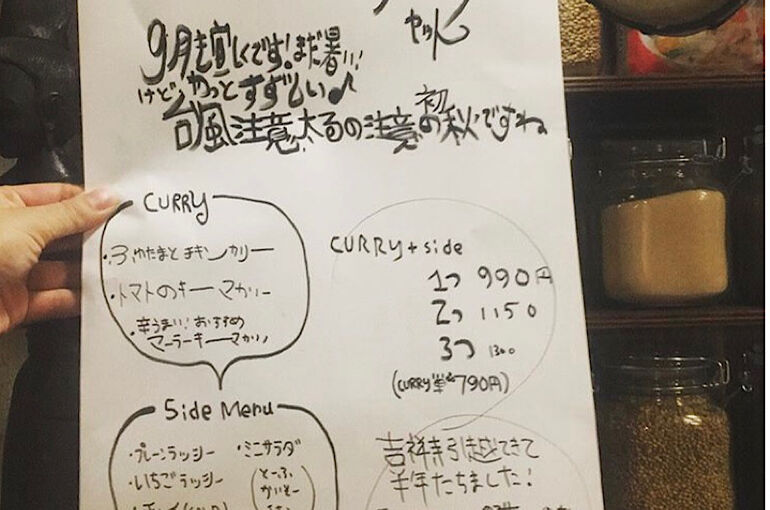 9月も宜しくです!まだ暑い!
けどやっとすずしい♪
台風注意太るの注意の初秋ですね
CURRY
チキンカリー
・トマトのキーマカリー
・辛うまい!おすすめ
マーラーキーマカリー
CURRY+side
1つ 990円
2つ 1150
3つ 1300
(CURRY単品790円)
Side Menu
・プレーンラッシー
・いちごラッシー
・ミニサラダ
(とーふ
かいそー
吉祥寺引越してきて
半年たちました!